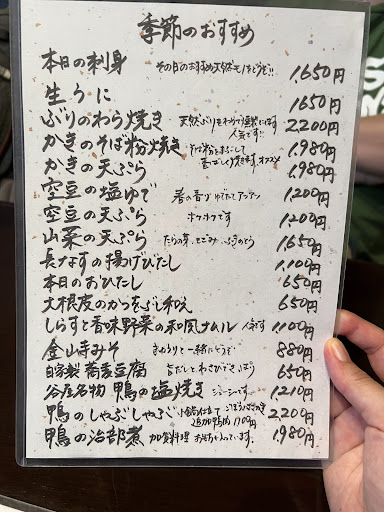 季節のおすすめ
本日の刺身 その日のおすすめ天然モノをどうぞ!! 1,650円
生うに 1,650円
ぶりのわら焼き 天然ぶりをわらで燻製にします 人気です!! 2,200円
かきのそば粉焼き そば粉をまぶして 香ばしく焼きます オススメ 1,980円
かきの天ぷら 1,980円
空豆の塩ゆで 春の香り ゆでたてアツアツ 1,200円
空豆の天ぷら ホクホクです 1,200円
山菜の天ぷら たらの芽、こごみ、ふきのとう 1,650円
長なすの揚げびたし 1,100円
本日のおひたし 650円
大根皮のかつおぶし和え 650円
しらすと香味野菜の和風ナムル 人気です 1,100円
金山寺みそ きゅうりと一緒にどうぞ 880円
自家製 蕎麦豆腐 旨だしとわさびでさっぱり 650円
谷屋名物 鴨の塩焼き ジューシーです 1,210円
鴨のしゃぶしゃぶ 小鍋仕立て 2,200円
鴨の治部煮 加賀料理 お麩が入っています。 1,980円